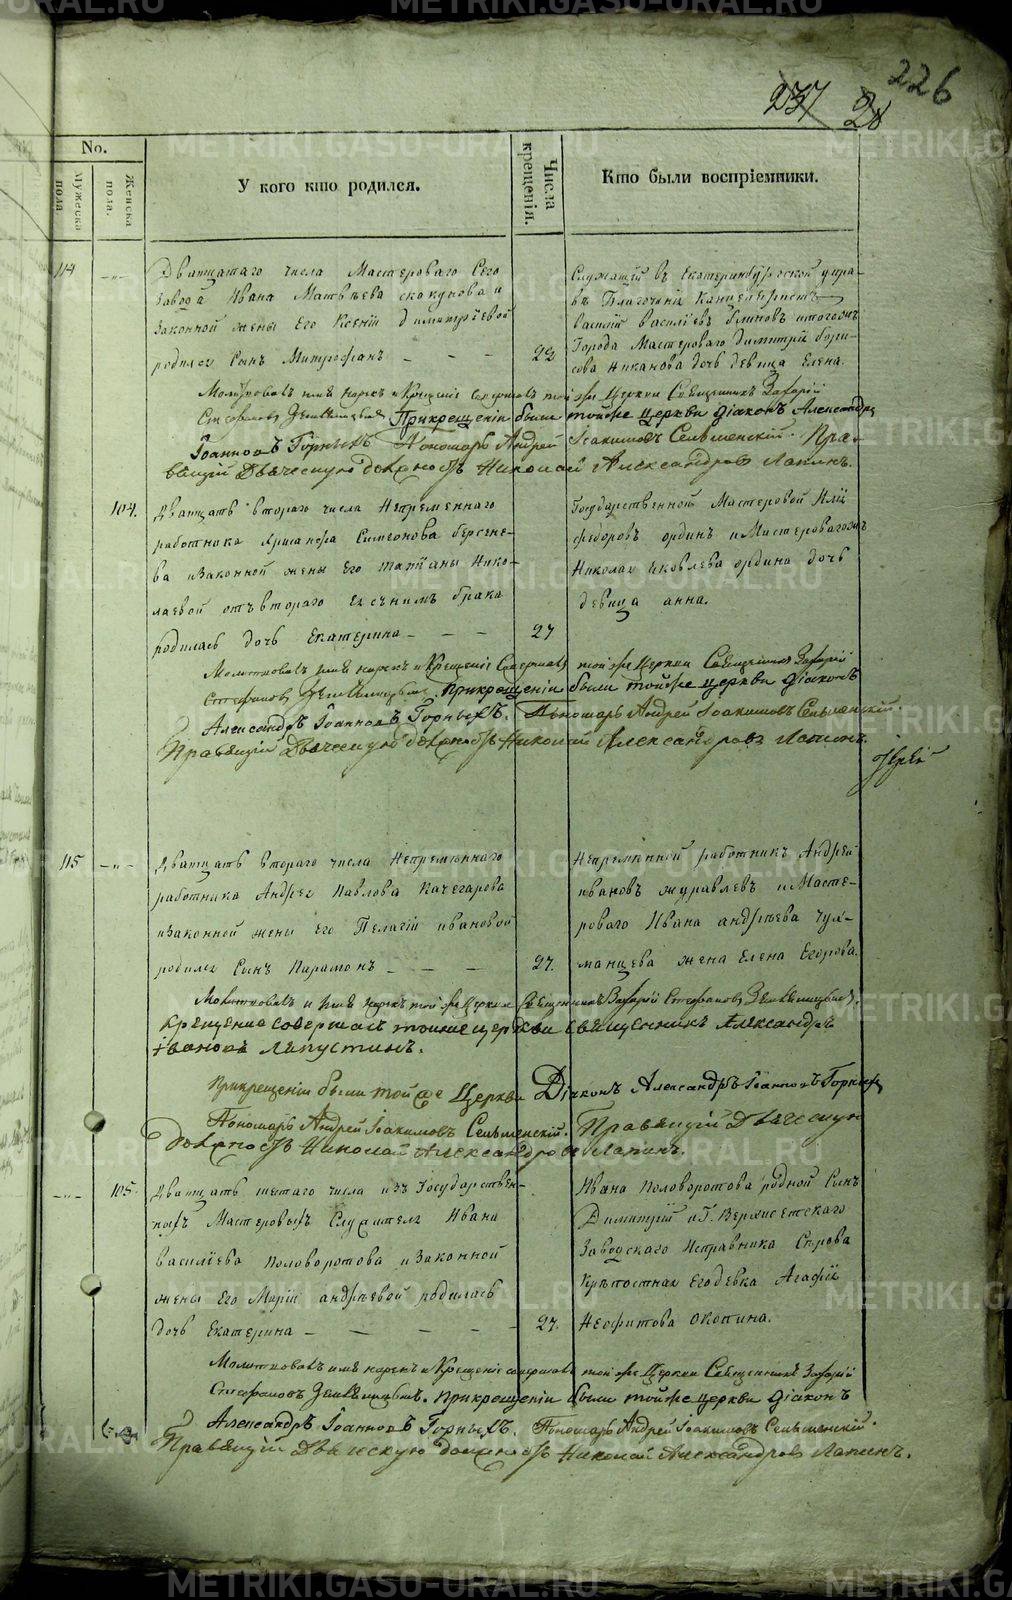 226
237 28
No.
Мужеска пола
Женска пола.
У кого кто родился.
Числа крещенія.
Кто были воспріемники.
114
Дватцатаго числа Мастероваго Сего
Завода Ивана Матвѣева скакунова и
Законной жены Его Ксеніи димитріевой
родился Сынъ Митрофанъ
22
Служащій въ Екатеринбургской упра-
въ Благочинія Канцеляристъ
василій василіевъ блиновъ итогожъ
Города Мастероваго димитрія бори-
сова никанова дочь девица Елена.
Молитвовалъ имя нарекъ и Крещеніе совершалъ той же Церкви Священникъ Захарій
Стефановъ Прикрещеніи были тойже церкви діаконъ Александръ
Іоанновъ Горныхъ Пономарь Андрей Іоакимовъ Сельменскій. Пра-
вящій Дьяческую должность Николай Александровъ Лапинъ.
104.
Дватцать втораго числа Непременнаго
работника Симеонова берсене-
ва изаконной жены Его татіаны Нико-
лаевой отъвтораго Ея снимъ брака
родилась дочь Екатерина
27
Государственной Мастеровой Илія
федоровъ ординъ иМастероваго
Николая яковлева ордина дочь
девица анна.
Молитвовалъ имя нарекъ и Крещеніе Совершалъ той же Церкви Священникъ Захарій
Стефановъ Прикрещеніи были тойже церкви діаконъ
Александръ Іоанновъ Горныхъ. Пономарь Андрей Іоакимовъ Сельменскій.
Правящій Дьяческую должность Николай Александровъ Лапинъ.
Іерей
115
Дватцать втораго числа Непременнаго
работника Андрея Павлова Качегарова
изаконной жены Его Пелагіи ивановой
родился Сынъ Парамонъ
27.
Непременной работникъ Андрей
ивановъ журавлевъ иМасте-
роваго Ивана андрѣева Чул-
манцева жена Елена Егорова.
Молитвовалъ и имя нарекъ той же Церкви Священникъ Захарій Стефановъ
Крещение совершалъ тойже церкви священникъ Александръ
Ивановъ Лапустинъ.
Прикрещеніи были той же Церкви Діаконъ Александръ Іоанновъ Горныхъ
Пономарь Андрей Іоакимовъ Сельменскій. Правящій Дьяческую
должность Николай Александровъ Лапинъ.
105.
Дватцать шестаго числа изъ Государствен-
ныхъ Мастеровыхъ Служителя Ивана
василіева половоротова изаконной
жены Его Маріи андрѣевой родилась
дочь Екатерина
27.
Ивана половоротова родной Сынъ
Димитрій иГ. Верхисетскаго
Заводскаго Исправника Сѣрова
Крѣпостная Его девка Агафія
Неофитова окопина.
Молитвовалъ имя нарекъ и Крещеніе совершалъ той же Церкви Священникъ Захарій
Стефановъ Прикрещеніи были тойже церкви діаконъ
Александръ Іоанновъ Горныхъ. Пономарь Андрей Іоакимовъ Сельменскій.
Правящій Дьяческую должность Николай Александровъ Лапинъ.
METRIKI.GASO-URAL.RU